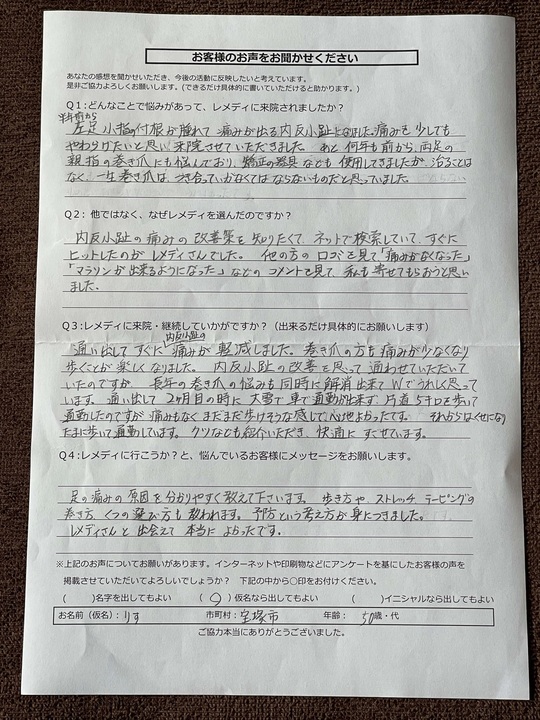 お客様のお声をお聞かせください
あなたの感想を聞かせいただき、今後の活動に反映したいと考えています。
是非ご協力よろしくお願いします。(できるだけ具体的に書いていただけると助かります。)
Q1:どんなことで悩みがあって、レメディに来院されましたか？
半年前から
左足小指の付根が腫れて痛みが出る内反小趾となりました。痛みを少しでも
やわらげたいと思い来院させていただきました。あと何年も前から、両足の
親指の巻き爪にも悩んでおり、矯正の器具なども使用してきましたが、治ることは
なく、一生巻き爪は、つき合っていかなくてはならないものだと思っていました。
Q2：他ではなく、なぜレメディを選んだのですか？
内反小趾の痛みの改善策を知りたくて、ネットで検索していて、すぐに
ヒットしたのがレメディさんでした。他の方の口コミを見て「痛みがなくなった」
「マラソンが出来るようになった」などのコメントを見て私も寄せてもらおうと思い
ました。
Q3：レメディに来院・継続していかがですか？（出来るだけ具体的にお願いします）
内反小趾の
通い出してすぐに痛みが軽減しました。巻き爪の方も痛みが少なくなり
歩くことが楽しくなりました。内反小趾の改善を思って通わせていただいて
いたのですが、長年の巻き爪の悩みも同時に解消出来てWでうれしく思って
います。通い出して2ヶ月目の時に大雪で車で通勤が出来ず、片道5キロを歩いて
通勤したのですが痛みもなくまだまだ歩けそうな感じで心地よかったです。それからはくせになり
たまに歩いて通勤しています。クツなども紹介いただき、快適にすごせています。
Q4：レメディに行こうか？と、悩んでいるお客様にメッセージをお願いします。
足の痛みの原因を分かりやすく教えて下さいます。歩き方や、ストレッチ テーピングの
巻き方、くつの選び方も教われます。予防という考え方が身につきました。
レメディさんと出会えて本当によかったです。
※上記のお声についてお願いがあります。インターネットや印刷物などにアンケートを基にしたお客様の声を
掲載させていただいてよろしいでしょうか？　下記の中から○印をお付けください。
(　　)名字を出してもよい　(　○　)仮名なら出してもよい　(　　)イニシャルなら出してもよい
お名前（仮名）：りす　市町村：宝塚市　年齢：50歳・代
ご協力本当にありがとうございました。